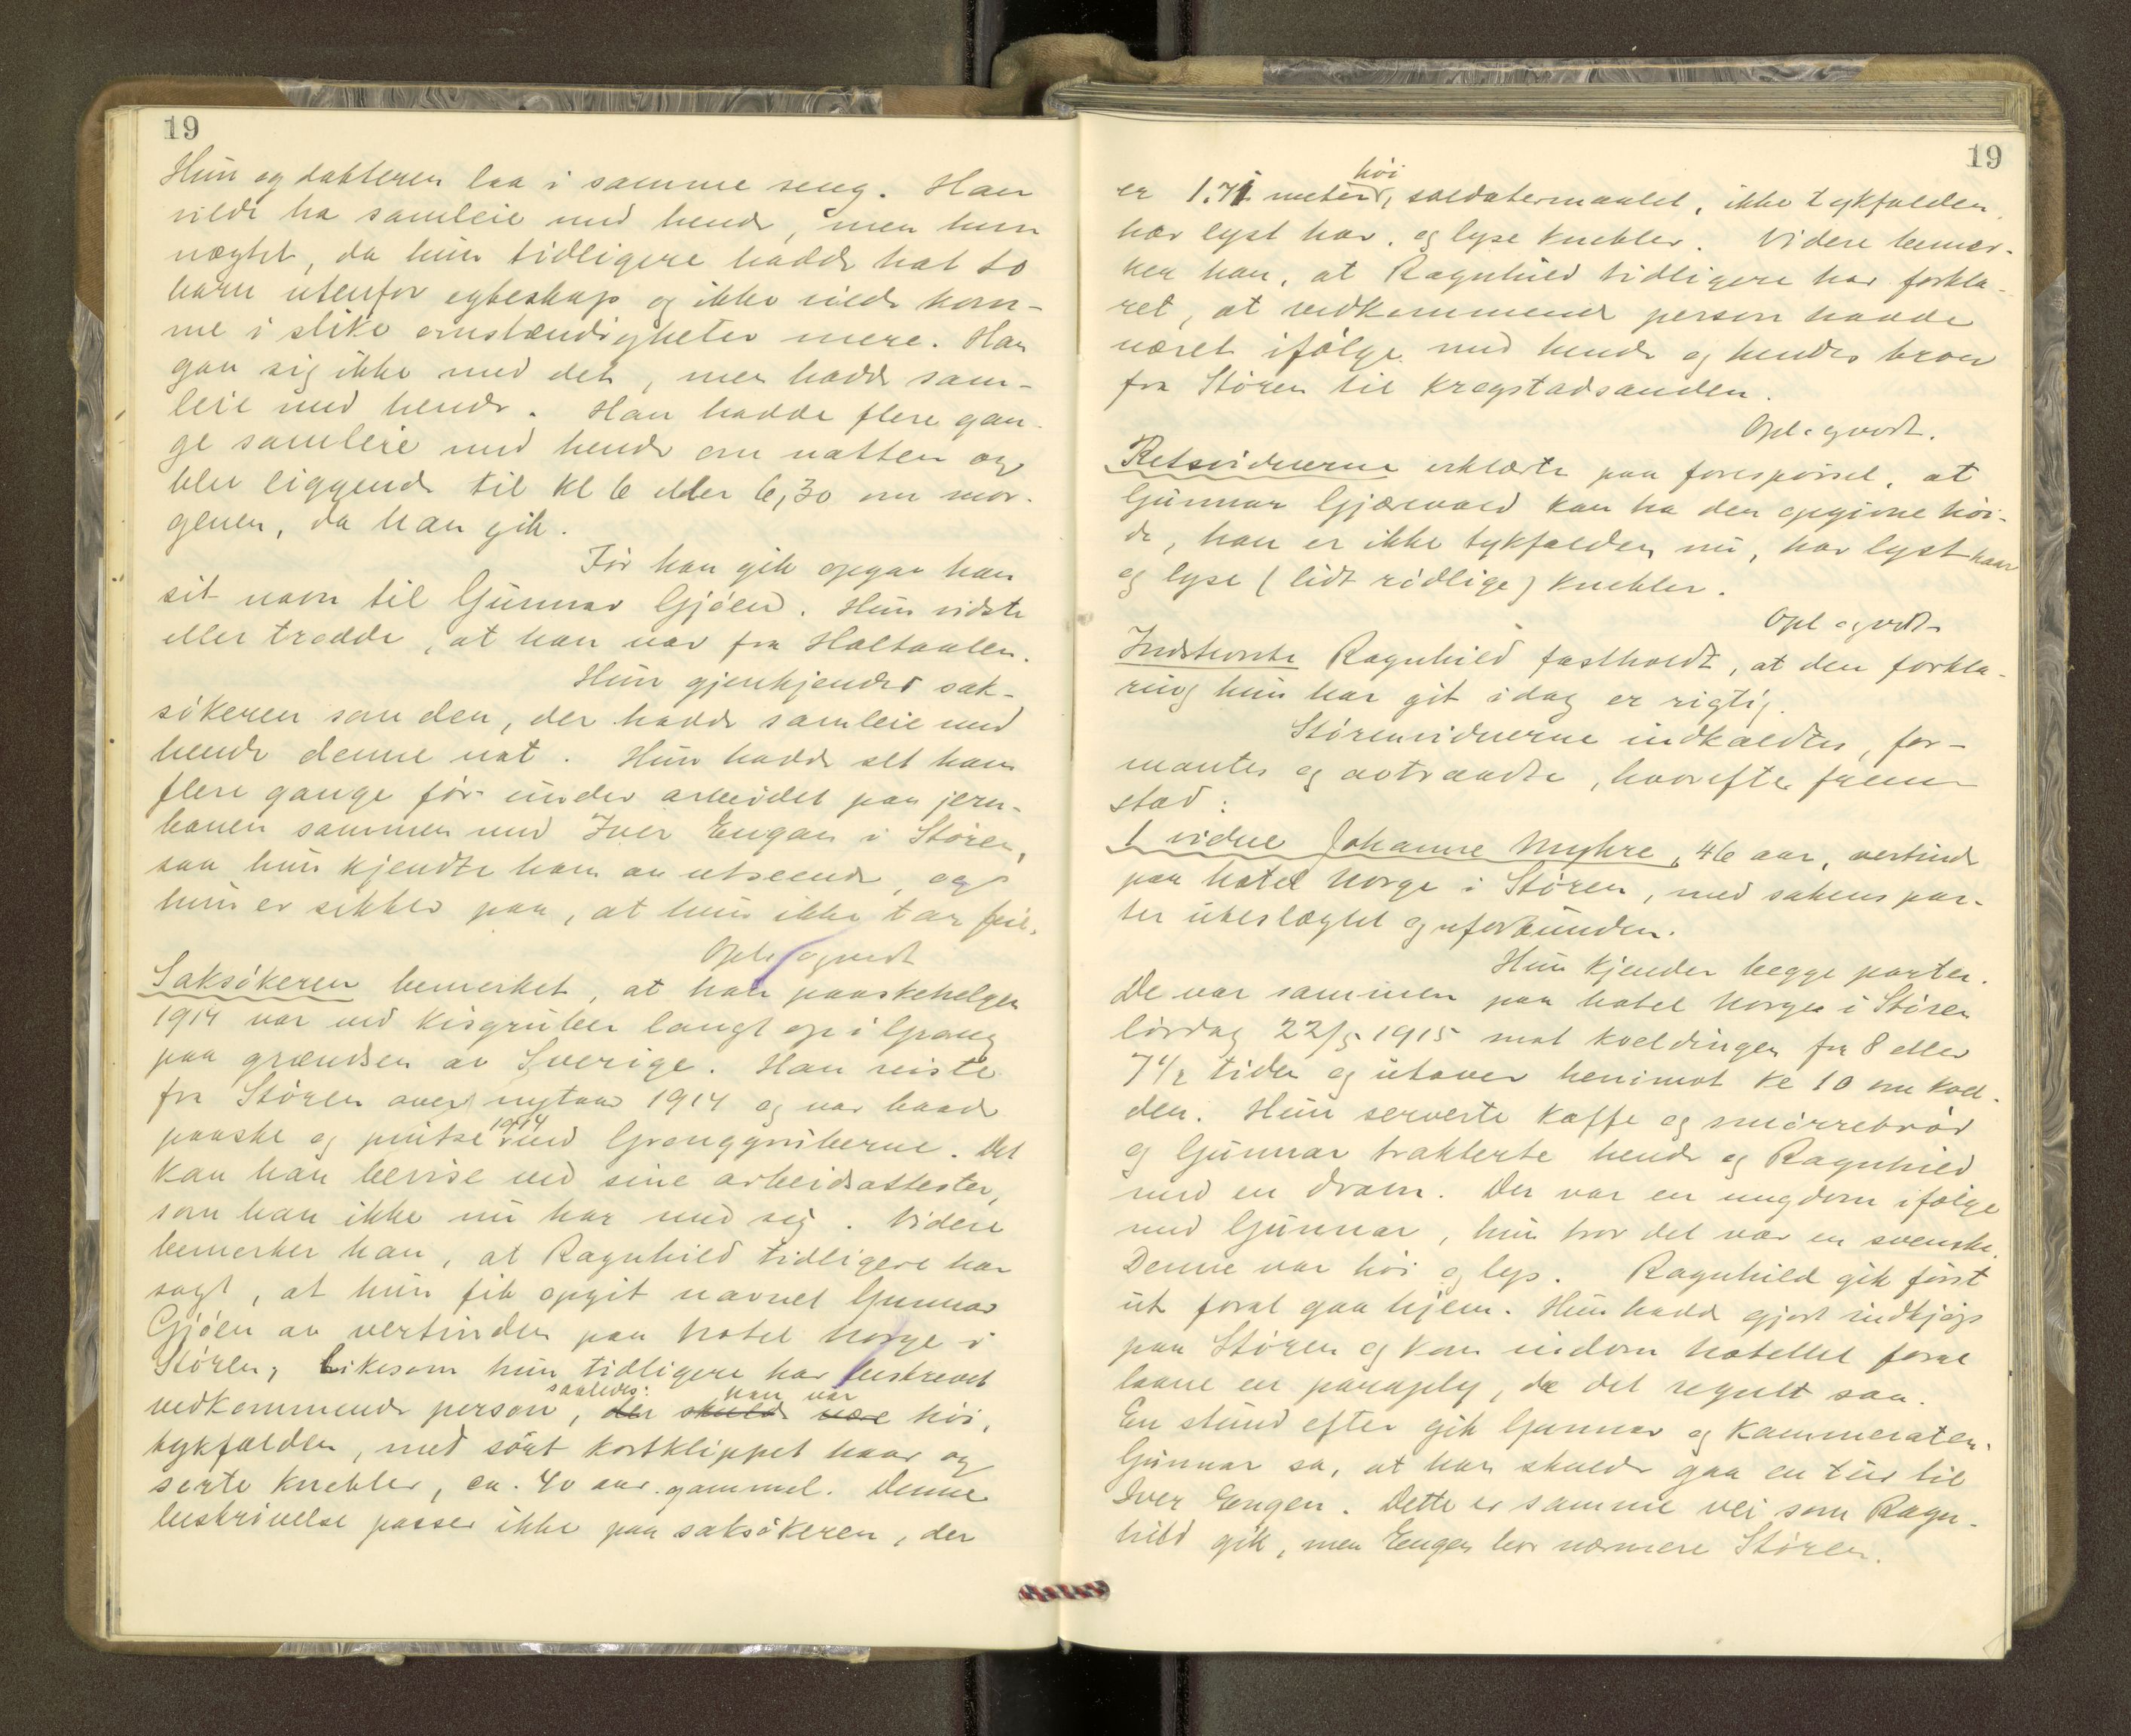 19
Hun og datteren laa i samme seng. Han
vilde ha samleie med hende, men hun
nægtet, da hun tidligere hadde hat to
barn utenfor egteskap og ikke vilde kom-
me i slike omstændigheter mere. Han
gav sig ikke med det, men hadde sam-
leie med hende. Han hadde flere gan-
ge samleie med hende om natten og
blev liggende til kl 6 eller 6,30 om mor-
genen, da han gik.
Før han gik opgav han
sit navn til Gunnar Gjøen. Hun vidste
eller trodde, at han var fra Holtaalen.
Hun gjenkjendes sak-
søkeren som den, der hadde samleie med
hende denne nat. Hun hadde set ham
flere gange før under arbeidet paa jern-
banen sammen med Iver Engan i Støren,
saa hun kjendte ham av utseende, og
hun er sikker paa, at hun ikke tar feil.
Opl. og vedt
Saksøkeren bemerket, at han paaskehelgen
1914 var ved kisgruber langt op i Grong
paa grændsen av Sverige. Han reiste
fra Støren over nytaar 1914 og var baade
paaske og pintse 1914 ved Gronggruberne. Det
kan han bevise ved sine arbeidsattester,
som han ikke nu har med sig. Videre
bemerker han, at Ragnhild tidligere har
sagt, at hun fik opgit navnet Gunnar
Gjøen av vertinden paa hotel Norge i
Støren, likesom hun tidligere har beskrevet
vedkommende person, saaledes: der skulde være han var høi,
tykfalden, med sort kortklippet haar og
sorte knebler, ca. 40 aar gammel. Denne
beskrivelse passer ikke paa saksøkeren, der
19
er 1.71 meter høi, soldatermaalet, ikke tykfalden,
har lyst haar, og lyse knebler. Videre bemer-
ker han, at Ragnhild tidligere har forkla-
ret, at vedkommende person hadde
været ifølge med hende og hendes bror
fra Støren til Krogstadsanden.
Opl. og vedt.
Retsvidnerne erklærte paa forespørsel, at
Gunnar Gjærvold kan ha den opgivne høi-
de, han er ikke tykfalden nu, har lyst haar
og lyse (lidt rødlige) knebler.
Opl og vedt.
Indstevnte Ragnhild fastholdt, at den forkla-
ring hun har git idag er rigtig.
Størenvidnerne indkaldtes, for-
mantes og avtraadte, hvorefter frem-
stod:
1 vidne Johanne Myhre, 46 aar, vertinde
paa hotel Norge i Støren, med sakens par-
ter ubeslægtet og uforbunden.
Hun kjender begge parter.
De var sammen paa hotel Norge i Støren
lørdag 22/5 1915 mot kveldingen fra 8 eller
7 1/2 tiden og utover henimot kl 10 om kvel-
den. Hun serverte kaffe og smørrebrød
og Gunnar trakterte hende og Ragnhild
med en dram. Der var en ungdom ifølge
med Gunnar, hun tror det var en svenske.
Denne var høi og lys. Ragnhild gik først
ut forat gaa hjem. Hun hadde gjort indkjøp
paa Støren og kom indom hotellet forat
laane en paraply, da det regnet saa.
En stund efter gik Gunnar og kammeraten.
Gunnar sa, at han skulde gaa en tur til
Iver Engen. Dette er samme vei som Ragn-
hild gik, men Engen bor nærmere Støren.